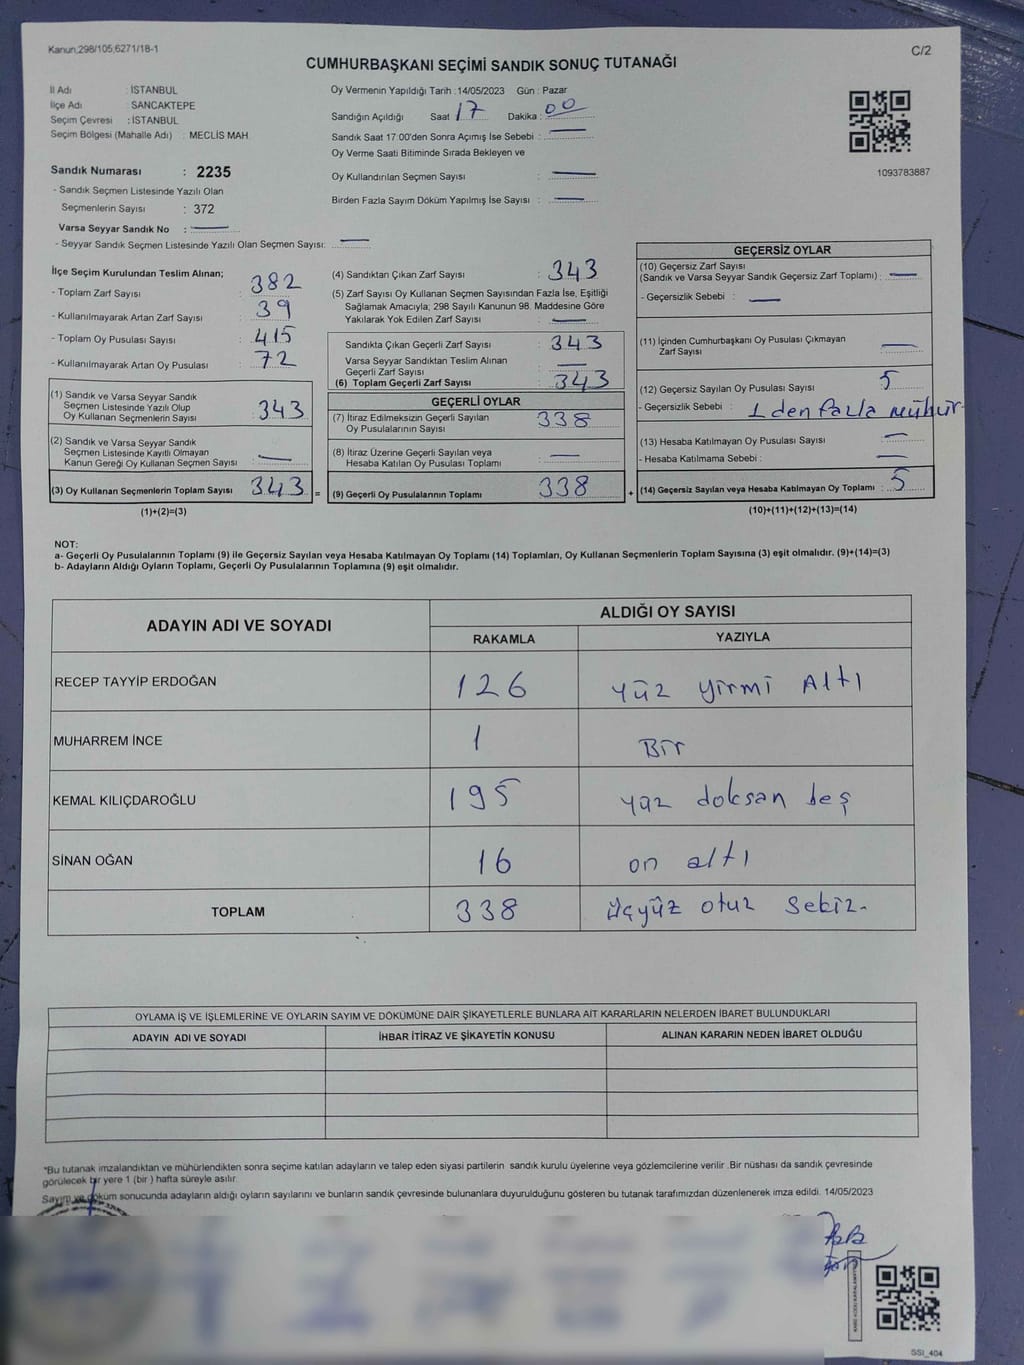 Kanun,298/105,6271/18-1
C/2
CUMHURBAŞKANI SEÇİMİ SANDIK SONUÇ TUTANAĞI
İl Adı : İSTANBUL
İlçe Adı : SANCAKTEPE
Seçim Çevresi : İSTANBUL
Seçim Bölgesi (Mahalle Adı) : MECLİS MAH
Sandık Numarası : 2235
- Sandık Seçmen Listesinde Yazılı Olan
Seçmenlerin Sayısı : 372
Varsa Seyyar Sandık No :
- Seyyar Sandık Seçmen Listesinde Yazılı Olan Seçmen Sayısı:
Oy Vermenin Yapıldığı Tarih :14/05/2023 Gün : Pazar
Sandığın Açıldığı Saat 17 Dakika : 00
Sandık Saat 17:00'den Sonra Açımış İse Sebebi :
Oy Verme Saati Bitiminde Sırada Bekleyen ve
Oy Kullandırılan Seçmen Sayısı :
Birden Fazla Sayım Döküm Yapılmış İse Sayısı :
1093783887
İlçe Seçim Kurulundan Teslim Alınan;
- Toplam Zarf Sayısı : 382
- Kullanılmayarak Artan Zarf Sayısı : 39
- Toplam Oy Pusulası Sayısı : 415
- Kullanılmayarak Artan Oy Pusulası : 72
(1) Sandık ve Varsa Seyyar Sandık
Seçmen Listesinde Yazılı Olup
Oy Kullanan Seçmenlerin Sayısı : 343
(2) Sandık ve Varsa Seyyar Sandık
Seçmen Listesinde Kayıtlı Olmayan
Kanun Gereği Oy Kullanan Seçmen Sayısı :
(3) Oy Kullanan Seçmenlerin Toplam Sayısı : 343 =
(1)+(2)=(3)
(4) Sandıktan Çıkan Zarf Sayısı : 343
(5) Zarf Sayısı Oy Kullanan Seçmen Sayısından Fazla İse, Eşitliği
Sağlamak Amacıyla; 298 Sayılı Kanunun 98. Maddesine Göre
Yakılarak Yok Edilen Zarf Sayısı :
Sandıkta Çıkan Geçerli Zarf Sayısı : 343
Varsa Seyyar Sandıktan Teslim Alınan
Geçerli Zarf Sayısı :
(6) Toplam Geçerli Zarf Sayısı : 343
GEÇERLİ OYLAR
(7) İtiraz Edilmeksizin Geçerli Sayılan
Oy Pusulalarının Sayısı : 338
(8) İtiraz Üzerine Geçerli Sayılan veya
Hesaba Katılan Oy Pusulası Toplamı :
(9) Geçerli Oy Pusulalarının Toplamı : 338 +
GEÇERSİZ OYLAR
(10) Geçersiz Zarf Sayısı
(Sandık ve Varsa Seyyar Sandık Geçersiz Zarf Toplamı) :
- Geçersizlik Sebebi :
(11) İçinden Cumhurbaşkanı Oy Pusulası Çıkmayan
Zarf Sayısı :
(12) Geçersiz Sayılan Oy Pusulası Sayısı : 5
- Geçersizlik Sebebi : 1 den fazla mühür
(13) Hesaba Katılmayan Oy Pusulası Sayısı :
- Hesaba Katılmama Sebebi :
(14) Geçersiz Sayılan veya Hesaba Katılmayan Oy Toplamı : 5
(10)+(11)+(12)+(13)=(14)
NOT:
a- Geçerli Oy Pusulalarının Toplamı (9) ile Geçersiz Sayılan veya Hesaba Katılmayan Oy Toplamı (14) Toplamları, Oy Kullanan Seçmenlerin Toplam Sayısına (3) eşit olmalıdır. (9)+(14)=(3)
b- Adayların Aldığı Oyların Toplamı, Geçerli Oy Pusulalarının Toplamına (9) eşit olmalıdır.
ADAYIN ADI VE SOYADI
ALDIĞI OY SAYISI
RAKAMLA YAZIYLA
RECEP TAYYİP ERDOĞAN 126 yüz yirmi Altı
MUHARREM İNCE 1 Bir
KEMAL KILIÇDAROĞLU 195 yüz doksan beş
SİNAN OĞAN 16 on altı
TOPLAM 338 üçyüz otuz sekiz-
OYLAMA İŞ VE İŞLEMLERİNE VE OYLARIN SAYIM VE DÖKÜMÜNE DAİR ŞİKAYETLERLE BUNLARA AİT KARARLARIN NELERDEN İBARET BULUNDUKLARI
ADAYIN ADI VE SOYADI İHBAR İTİRAZ VE ŞİKAYETİN KONUSU ALINAN KARARIN NEDEN İBARET OLDUĞU
*Bu tutanak imzalandıktan ve mühürlendikten sonra seçime katılan adayların ve talep eden siyasi partilerin sandık kurulu üyelerine veya gözlemcilerine verilir .Bir nüshası da sandık çevresinde
görülecek bir yere 1 (bir ) hafta süreyle asılır.
Sayım ve döküm sonucunda adayların aldığı oyların sayılarını ve bunların sandık çevresinde bulunanlara duyurulduğunu gösteren bu tutanak tarafımızdan düzenlenerek imza edildi. 14/05/2023
SSI_404